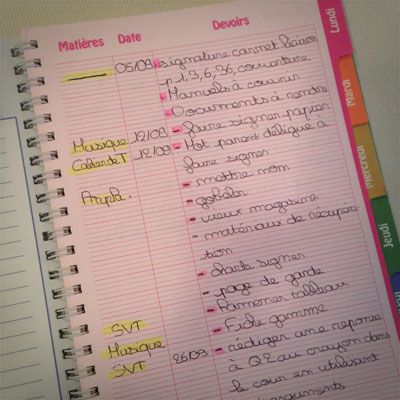 Matières Date Devoirs
05/09 - signature carnet liaison
p 1,3,6,36, couverture
- Manuels à couvrir
- Documents à rendre
Musique 12/09 - faire signer papier
Cahier de T 12/09 - Mot parent délégué à
faire signer
Arpla. - mettre nom
- gobelet
- vieux magazine
- matériaux de récupéra-
tion
- signer
- page de garde
- Ramener tableau
SVT - Fiche gamme
Musique 26/09 - rédiger une réponse
SVT à Q2 au crayon dans
le cour en utilisant
arguments
Lundi
Mardi
Mercredi
Jeudi